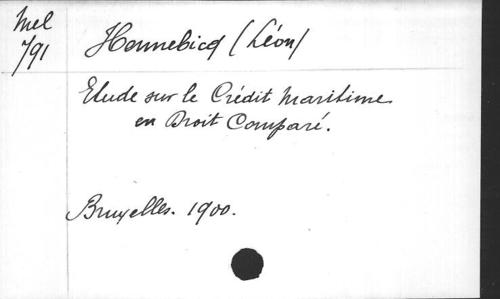 Mel
791
Hennebicq (Léon)
Etude sur le Crédit Maritime
en Droit Comparé.
Bruxelles. 1900.